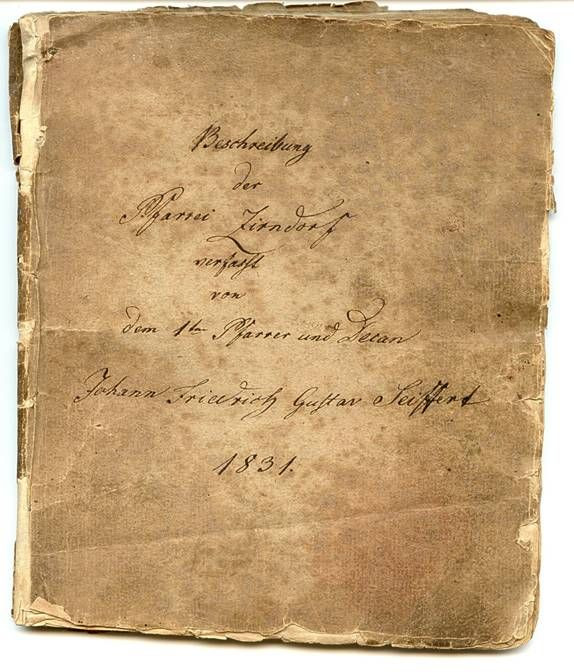 Beschreibung
der
Pfarrei Zirndorf
verfasst
von
dem 1ten Pfarrer und Decan
Johann Friedrich Gustav Seiffert
1831.